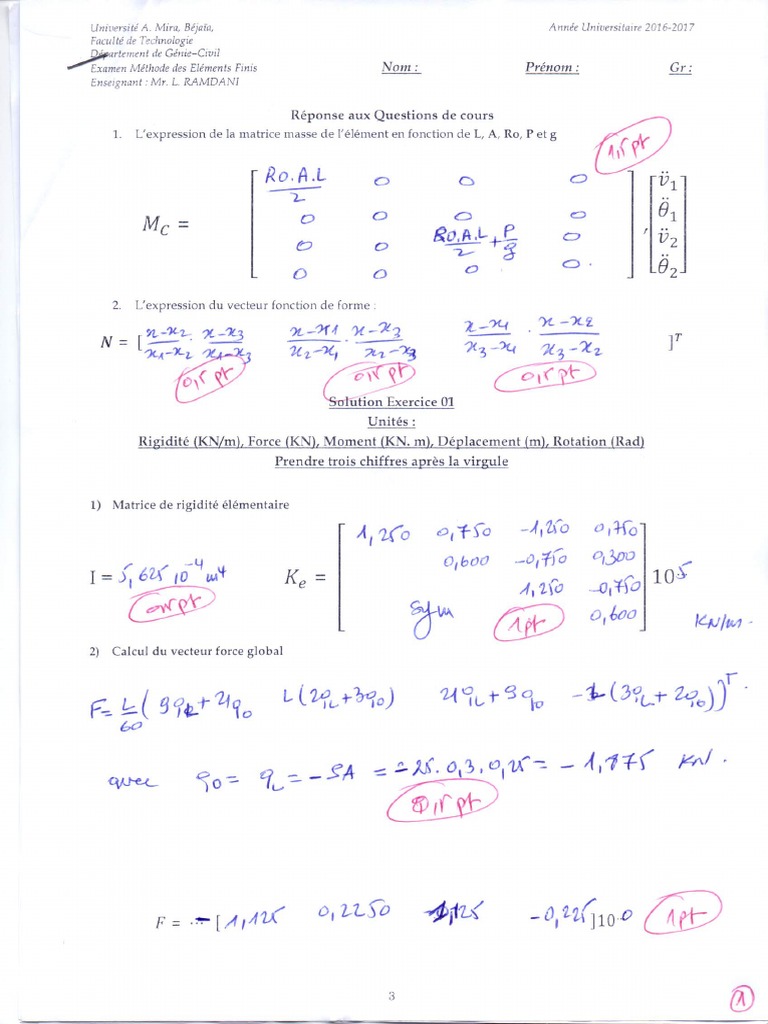 Université A. Mira, Béjaïa, Année Universitaire 2016-2017
Faculté de Technologie
Département de Génie–Civil
Examen Méthode des Eléments Finis Nom : Prénom : Gr :
Enseignant : Mr. L. RAMDANI
Réponse aux Questions de cours
1. L'expression de la matrice masse de l'élément en fonction de L, A, Ro, P et g
1,5 pt
M_C = [ Ro.A.L/2 0 0 0 ] , [ v̈1
0 0 0 0 θ̈1
0 0 Ro.A.L/2 + P/g 0 v̈2
0 0 0 0. θ̈2 ]
2. L'expression du vecteur fonction de forme :
N = [ x-x2/x1-x2 . x-x3/x1-x3 x-x1/x2-x1 . x-x3/x2-x3 x-x1/x3-x1 . x-x2/x3-x2 ]^T
0,5 pt 0,5 pt 0,5 pt
Solution Exercice 01
Unités :
Rigidité (KN/m), Force (KN), Moment (KN. m), Déplacement (m), Rotation (Rad)
Prendre trois chiffres après la virgule
1) Matrice de rigidité élémentaire
1,250 0,750 -1,250 0,750
0,600 -0,750 0,300
I = 5,625 10^-4 m4 K_e = 1,250 -0,750 10^5
Sym 1pt 0,600 KN/m.
2) Calcul du vecteur force global
F = L/60 ( 9qL + 21q0 L(2qL + 3q0) 21qL + 9q0 -L(3qL + 2q0))^T.
avec q0 = qL = -ρA = -25. 0,3. 0,25 = -1,875 KN/.
0,5 pt
F = - [ 1,125 0,2250 1,125 -0,225 ]10 0 1pt
3
1